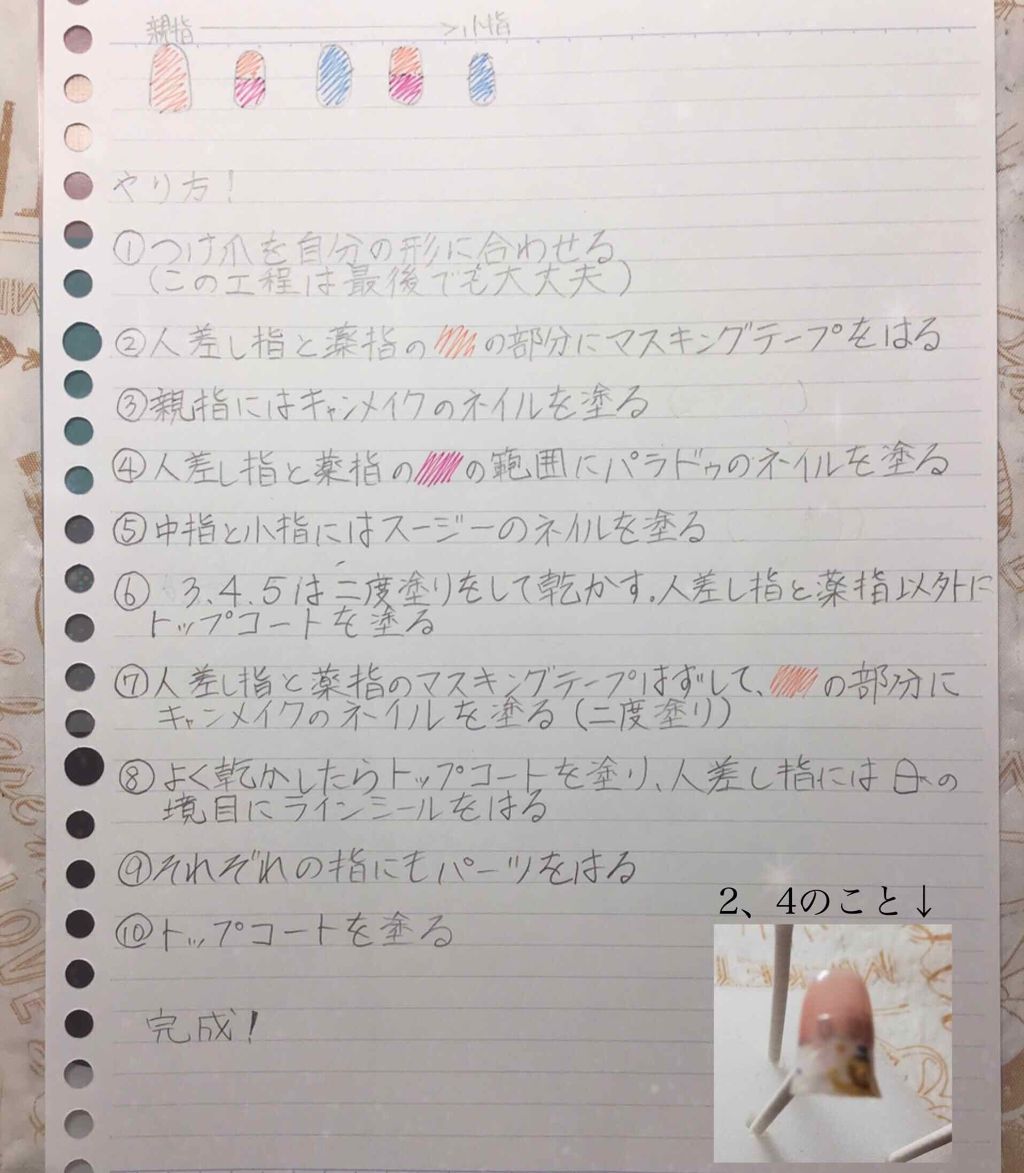 親指 → 小指
やり方!
①つけ爪を自分の形に合わせる
(この工程は最後でも大丈夫)
②人差し指と薬指の の部分にマスキングテープをはる
③親指にはキャンメイクのネイルを塗る
④人差し指と薬指の の範囲にパラドゥのネイルを塗る
⑤中指と小指にはスージーのネイルを塗る
⑥ 3.4.5は二度塗りをして乾かす.人差し指と薬指以外に
トップコートを塗る
⑦人差し指と薬指のマスキングテープはずして、 の部分に
キャンメイクのネイルを塗る(二度塗り)
⑧よく乾かしたらトップコートを塗り、人差し指には の
境目にラインシールをはる
⑨それぞれの指にもパーツをはる
⑩トップコートを塗る
完成!
2、4のこと↓